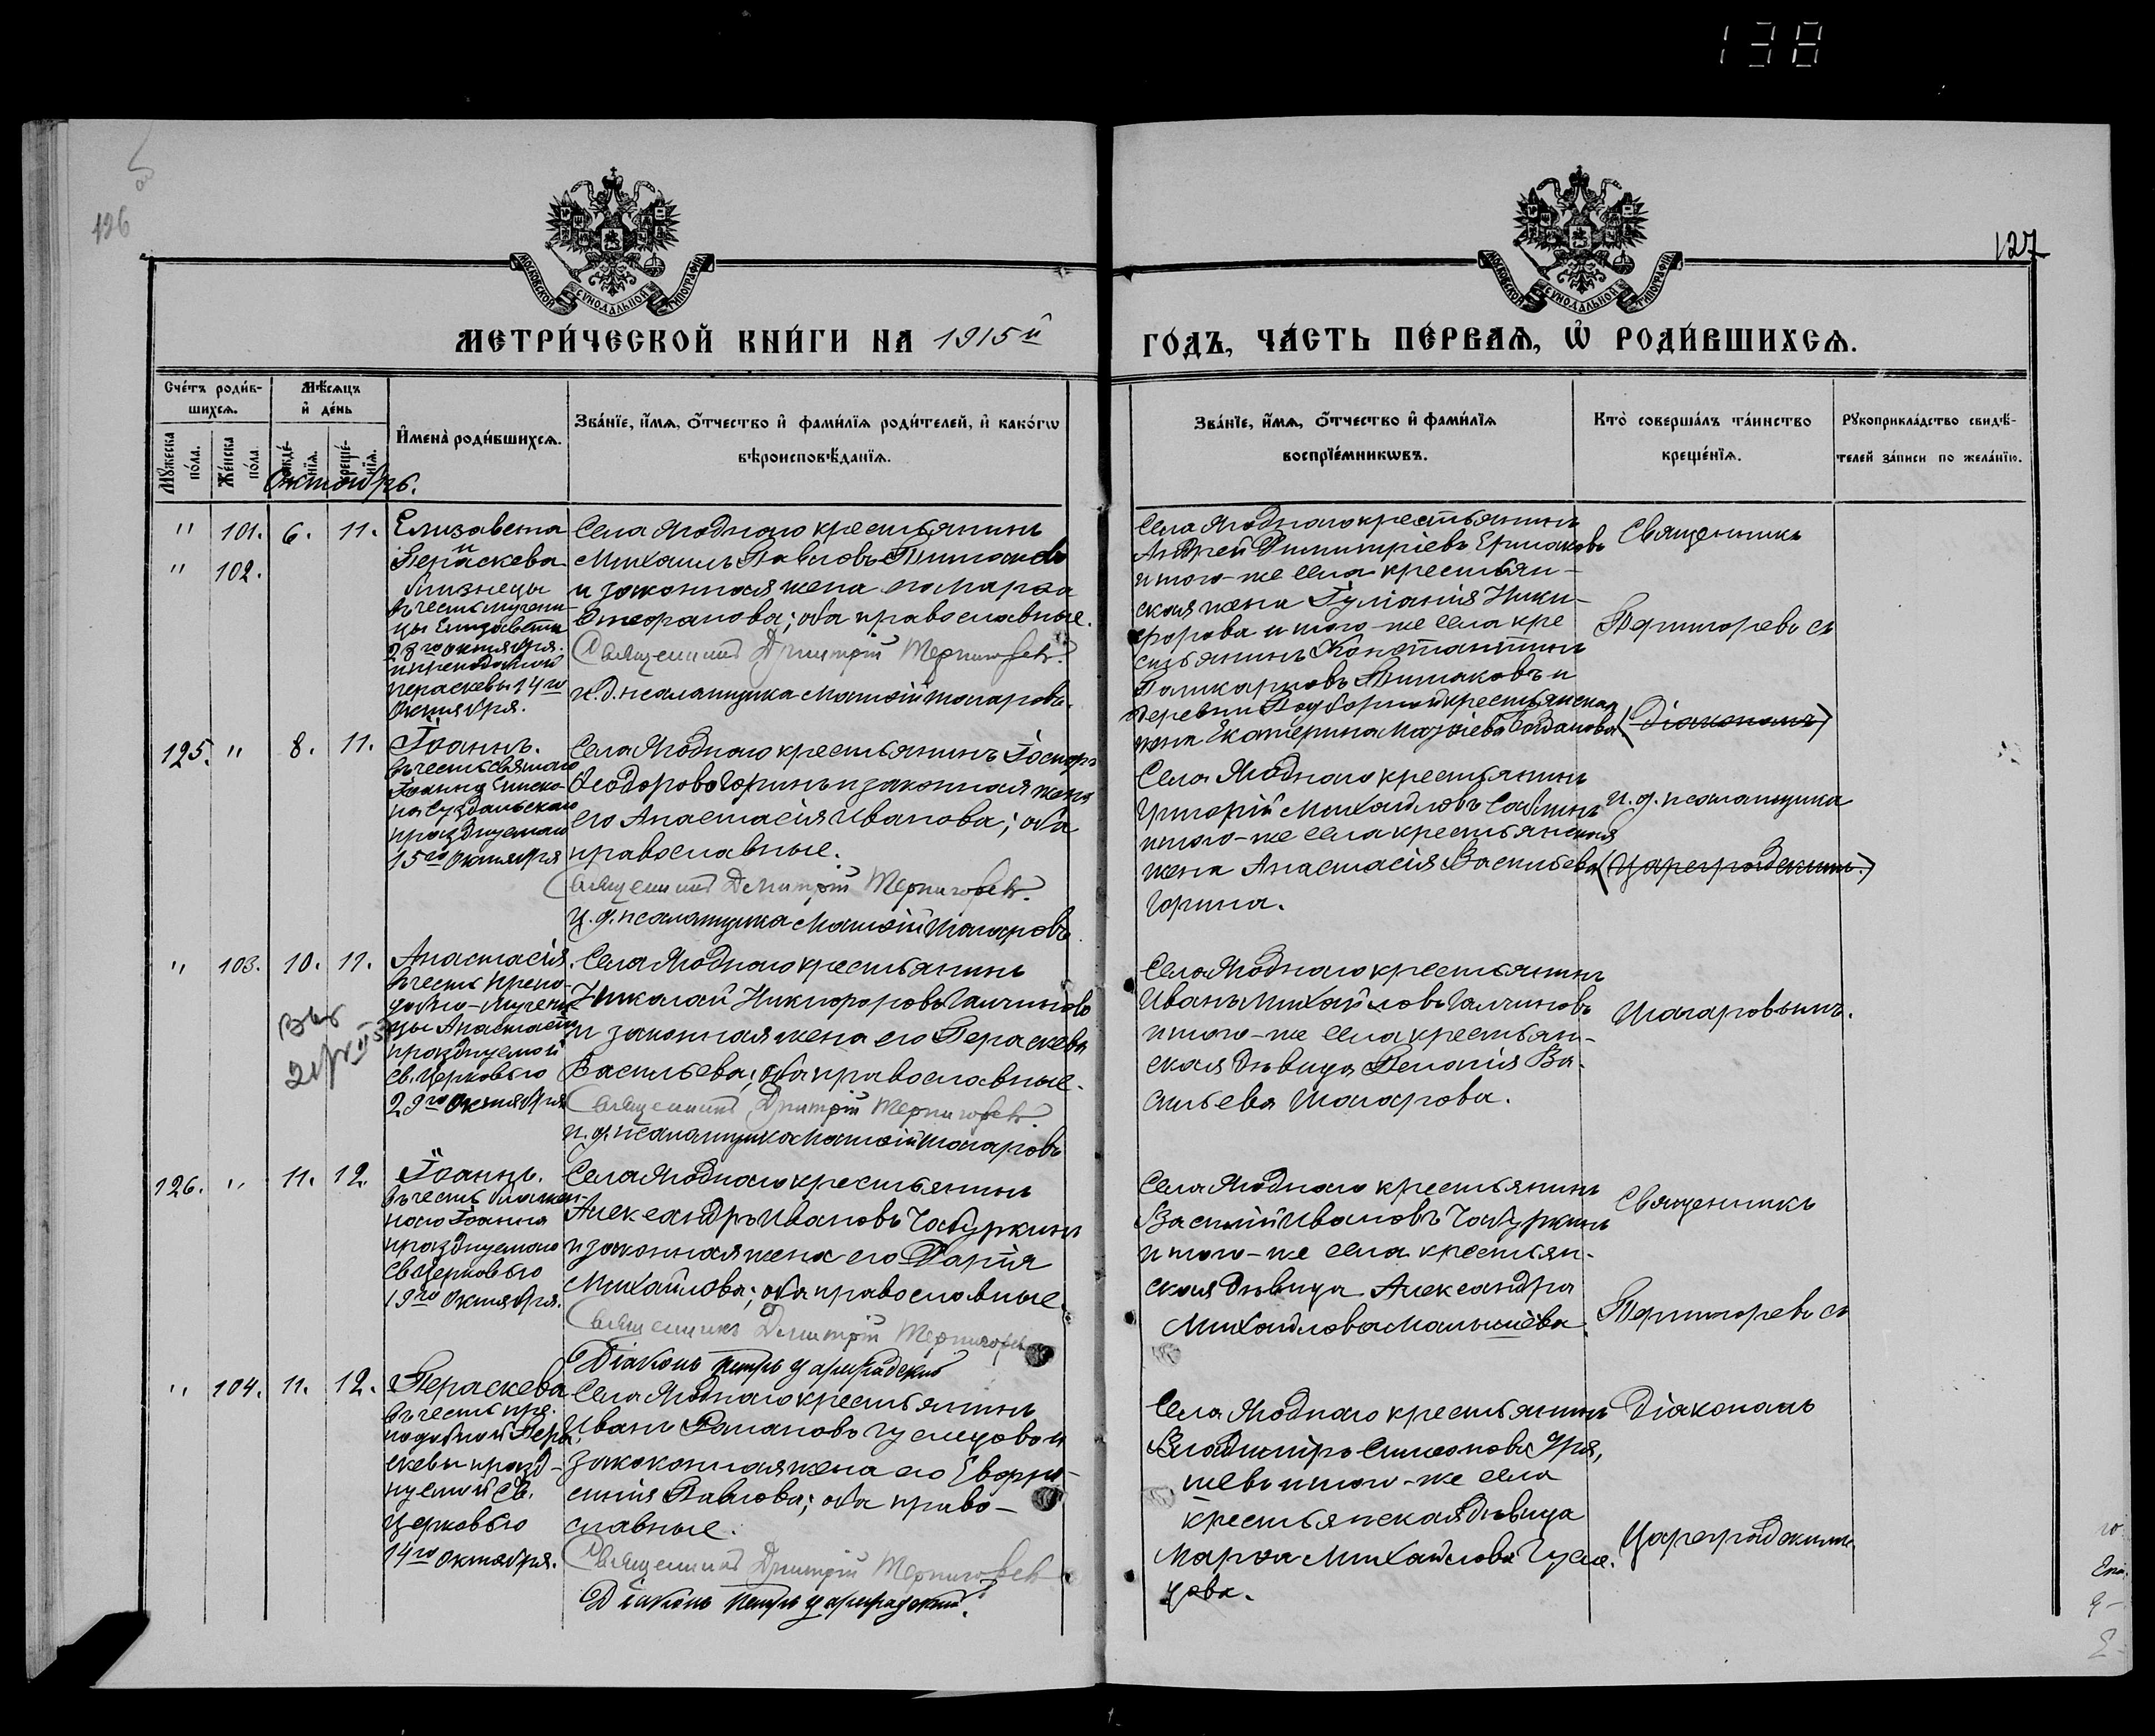 138
126
127
МОСКОВСКОЙ СѴНОДАЛЬНОЙ ТИПОГРАФІИ
МОСКОВСКОЙ СѴНОДАЛЬНОЙ ТИПОГРАФІИ
МЕТРИ́ЧЕСКОЙ КНИ́ГИ НА 1915й
ГО́ДЪ, ЧА́СТЬ ПЕ́РВАѦ, Ѽ РОДИ́ВШИХСѦ.
Сче́тъ роди́в-
шихсѧ.
Мѣ́сѧцъ
и҆ де́нь
Мꙋ́жеска
по́ла.
Же́нска
по́ла.
рожде́-
нїѧ.
креще́-
нїѧ.
И҆мена̀ роди́вшихсѧ.
Зва́нїе, и҆́мѧ, ѻ҆́тчество и҆ фами́лїѧ роди́телей, и҆ како́гѡ
вѣроисповѣ́данїѧ.
Зва́нїе, и҆́мѧ, ѻ҆́тчество и҆ фами́лїѧ
воспрїе́мникѡвъ.
Кто̀ соверша́лъ та́инство
креще́нїѧ.
Рꙋкоприкла́дство свидѣ́-
телей за́писи по жела́нїю.
Октябрь.
" 101. 6. 11. Елизавета
и
" 102. Параскева
близнецы
въ честь мучени-
цы Елизаветы
28го октября.
и преподобной
Параскевы 14го
Октября.
Села Ягоднаго крестьянинъ
Михаилъ Павловъ
и законная жена его Марѳа
Стефанова; оба православные.
Священникъ Димитрій Терниговъ
и. д. псаломщика Матѳій Шагаровъ.
Села Ягоднаго крестьянинъ
Андрей Димитріевъ Ермаковъ
и того-же села крестьян-
ская жена Іуліанія Ники-
форова и того-же села кре
стьянинъ Константинъ
Поликарповъ и
деревни крестьянская
жена Екатерина Богданова
Священникъ
(Діаконамъ)
125. " 8. 11. Іоаннъ.
въ честь Святаго
Іоанна Еписко-
па Суздальскаго
празднуемаго
15го октября
Села Ягоднаго крестьянинъ
Ѳеодоровъ Горинъ и законная жена
его Анастасія Иванова; оба
православные.
Священникъ Димитрій
и. д. псаломщика Матѳій Шагаровъ
Села Ягоднаго крестьянинъ
Григорій Михайловъ
и того-же села крестьянская
жена Анастасія Васильева
Горина.
и. д. псаломщика
(Цареградскимъ.)
" 103. 10. 11. Анастасія.
въ честь препо-
добно-мучени
цы Анастасіи
празднуемой
св. Церковью
29го октября
Села Ягоднаго крестьянинъ
Николай Никифоровъ
и законная жена его Параскева
Васильева; оба православные.
Священникъ Димитрій
и. д. псаломщика Матѳій Шагаровъ
Села Ягоднаго крестьянинъ
Иванъ Михайловъ
и того-же села крестьян-
ская дѣвица Пелагія Ва-
сильева Шагарова.
Шагаровымъ.
126. " 11. 12. Іоаннъ.
въ честь блажен-
наго Іоанна
празднуемаго
св Церковью
19го октября.
Села Ягоднаго крестьянинъ
Александръ Ивановъ Чабуркинъ
и законная жена его Дарія
Михайлова; оба православные.
Священникъ Димитрій
Діаконъ Петръ Цареградскій
Села Ягоднаго крестьянинъ
Василій Ивановъ Чабуркинъ
и того-же села крестьян-
ская дѣвица Александра
Михайлова Малышева.
Священникъ
" 104. 11. 12. Параскева
въ честь пре-
подобной Пара
скевы празд-
нуемой Св.
Церковью
14го октября.
Села Ягоднаго крестьянинъ
Иванъ Романовъ и
закоконная жена его Евфро-
синія Павлова; оба право-
славные.
Священникъ Димитрій
Діаконъ Петръ Цареградскій.
Села Ягоднаго крестьянинъ
Владиміръ Симеоновъ
и того-же села
крестьянская дѣвица
Марѳа Михайлова
Діаконамъ
Цареградскимъ